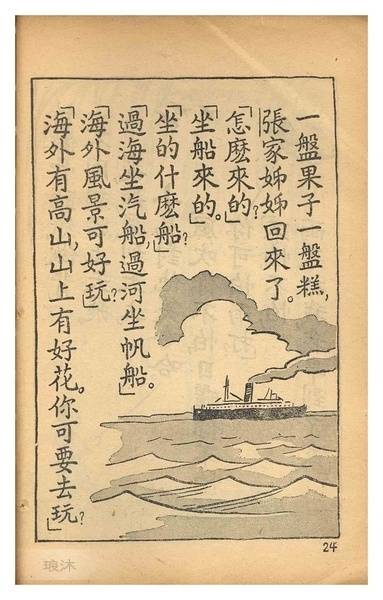 一盤果子一盤糕，
張家姊姊回來了。
「怎麽來的？」
「坐船來的。」
「坐的什麽船？」
「過海坐汽船，過河坐帆船。」
「海外風景可好玩？」
「海外有高山，山上有好花。你可要去玩？」
24
琅沐